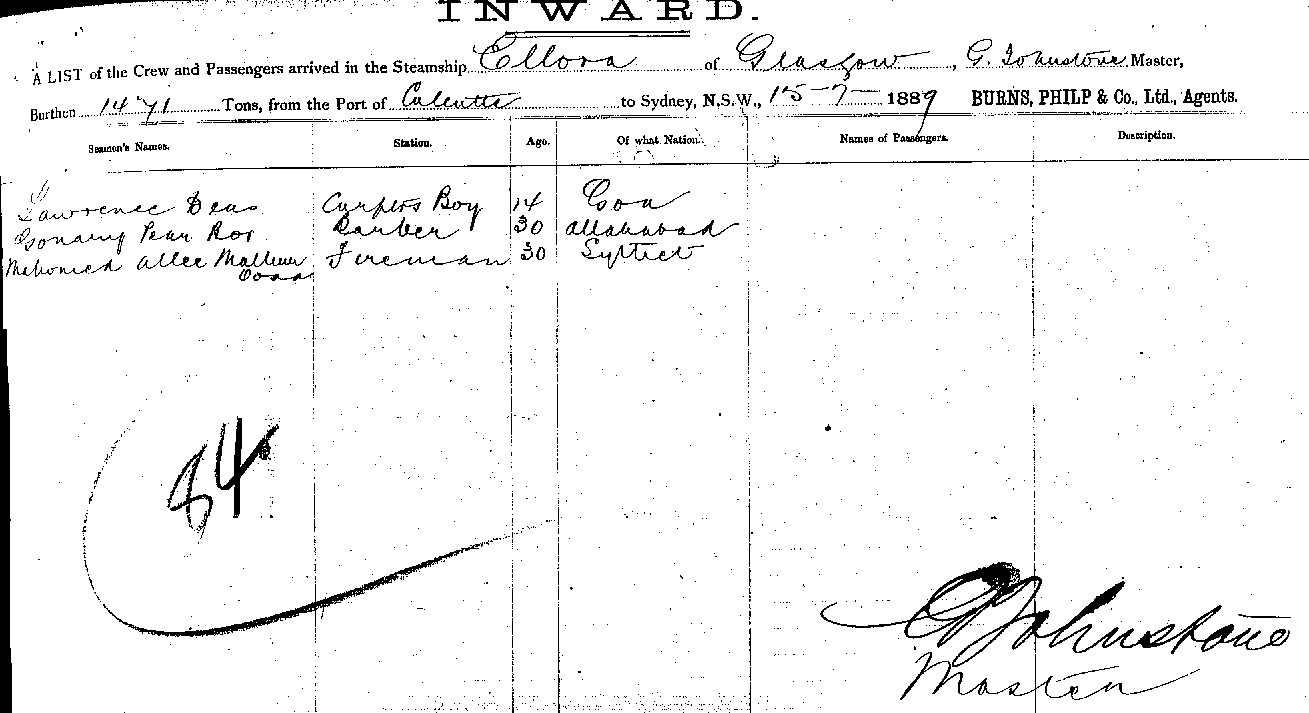 INWARD.
A LIST of the Crew and Passengers arrived in the Steamship Ellora of Glasgow, G. Johnstone Master,
Burthen 1471 Tons, from the Port of Calcutta to Sydney, N.S.W., 15-7-1889 BURNS, PHILP & Co., Ltd., Agents.
Seamen's Names. Station. Age. Of what Nation. Names of Passengers. Description.
Lawrence Deas Boy 14 Goa
30 Allahabad
Mahomed Allee Fireman 30
84
G Johnstone
Master